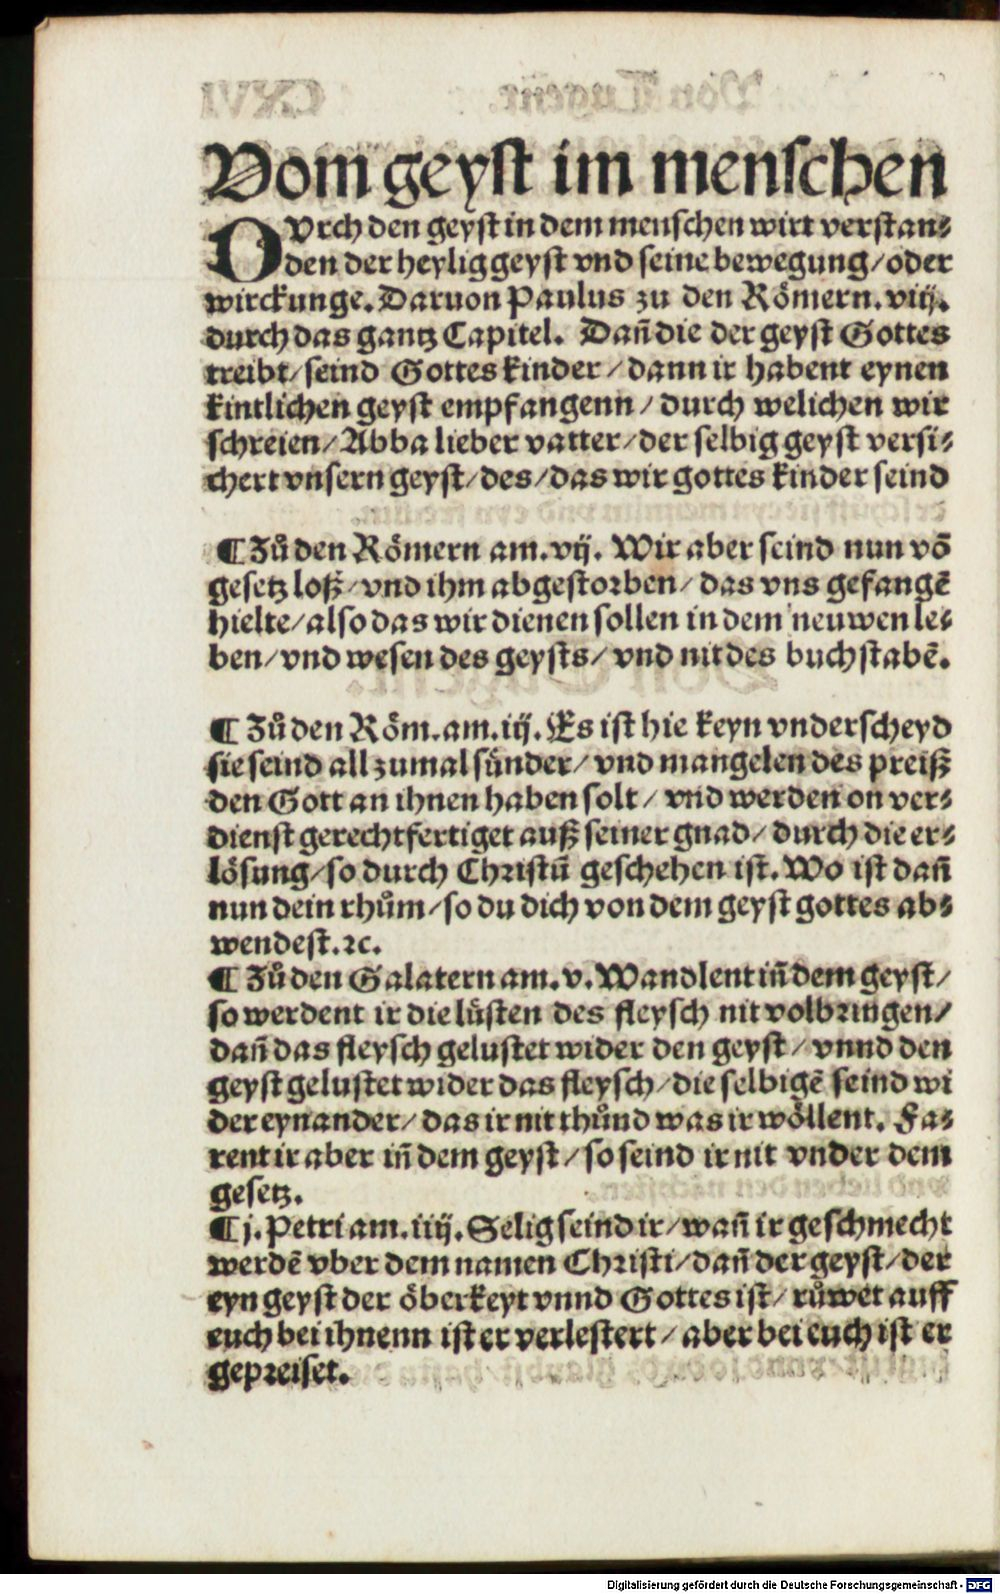 Vom geyst im menschen
DVrch den geyst in dem menschen wirt verstan⸗
den der heylig geyst vnd seine bewegung/oder
wirckunge. Daruon Paulus zu den Römern. viij.
durch das gantz Capitel. Dañ die der geyst Gottes
treibt/seind Gottes kinder/dann ir habent eynen
kintlichen geyst empfangenn/durch welichen wir
schreien/Abba lieber vatter/der selbig geyst versi⸗
chert vnsern geyst/des/das wir gottes kinder seind
¶ Zů den Römern am. vij. Wir aber seind nun võ
gesetz loß/vnd ihm abgestorben/das vns gefangẽ
hielte/also das wir dienen sollen in dem neuwen le⸗
ben/vnd wesen des geysts/vnd nit des buchstabẽ.
¶ Zů den Röm. am. iij. Es ist hie keyn vnderscheyd
sie seind all zumal sünder/vnd mangelen des preiß
den Gott an ihnen haben solt/vnd werden on ver⸗
dienst gerechtfertiget auß seiner gnad/durch die er⸗
lösung/so durch Christũ geschehen ist. Wo ist dañ
nun dein rhům/so du dich von dem geyst gottes ab⸗
wendest. ꝛc.
¶ Zů den Galatern am. v. Wandlent iñ dem geyst/
so werdent ir die lüsten des fleysch nit volbringen/
dañ das fleysch gelustet wider den geyst/vnnd den
geyst gelustet wider das fleysch/die selbigẽ seind wi
der eynander/das ir nit thůnd was ir wöllent. Fa⸗
rent ir aber iñ dem geyst/so seind ir nit vnder dem
gesetz.
¶ j. Petri am. iiij. Selig seind ir/wañ ir geschmecht
werdẽ vber dem namen Christi/dañ der geyst/der
eyn geyst der öberkeyt vnnd Gottes ist/růwet auff
euch bei ihnenn ist er verlestert/aber bei euch ist er
gepreiset.
Digitalisierung gefördert durch die Deutsche Forschungsgemeinschaft - DFG